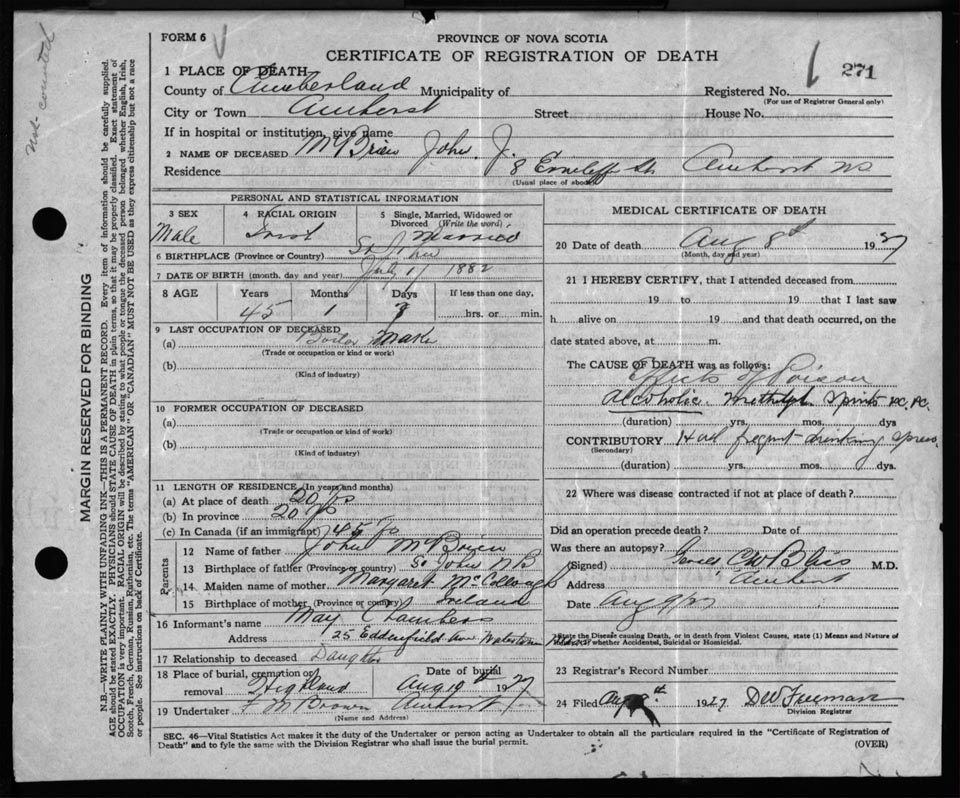 not counted
MARGIN RESERVED FOR BINDING
N.B.—WRITE PLAINLY WITH UNFADING INK—THIS IS A PERMANENT RECORD. Every item of information should be carefully supplied.
AGE should be stated EXACTLY. PHYSICIANS should STATE CAUSE OF DEATH in plain terms, so that it may be properly classified. Exact statement of
OCCUPATION is very important. RACIAL ORIGIN will be described by stating to what people or tongue the deceased person belonged whether English, Irish,
Scotch, French, German, Russian, Ruthenian, etc. The terms "AMERICAN" or "CANADIAN" MUST NOT BE USED as they express citizenship but not a race
or people. See instructions on back of Certificate.
FORM 6
PROVINCE OF NOVA SCOTIA
CERTIFICATE OF REGISTRATION OF DEATH
271
1 PLACE OF DEATH
County of Cumberland Municipality of Registered No.
(For use of Registrar General only)
City or Town Amherst Street House No.
If in hospital or institution, give name
2 NAME OF DECEASED McBrien John J.
Residence 8 St. Amherst NS
(Usual place of abode)
PERSONAL AND STATISTICAL INFORMATION
3 SEX Male
4 RACIAL ORIGIN Irish
5 Single, Married, Widowed or Divorced (Write the word) Married
6 BIRTHPLACE (Province or Country) St John
7 DATE OF BIRTH (month, day and year) July 1 1882
8 AGE Years Months Days If less than one day,
45 1 8 hrs. or min.
9 LAST OCCUPATION OF DECEASED
(a) Boiler Maker
(Trade or occupation or kind or work)
(b)
(Kind of industry)
10 FORMER OCCUPATION OF DECEASED
(a)
(Trade or occupation or kind of work)
(b)
(Kind of industry)
11 LENGTH OF RESIDENCE (In years and months)
(a) At place of death 20 yrs
(b) In province 20 yrs
(c) In Canada (if an immigrant) 45 yrs
Parents
12 Name of father John McBrien
13 Birthplace of father (Province or country) St John NB
14 Maiden name of mother Margaret McCollough
15 Birthplace of mother (Province or country) Ireland
16 Informant's name May Chambers
Address 25 Ave Watertown
17 Relationship to deceased Daughter
18 Place of burial, cremation or removal Highland
Date of burial Aug 10th 1927
19 Undertaker F M Brown Amherst
(Name and Address)
MEDICAL CERTIFICATE OF DEATH
20 Date of death Aug 8th 1927
(Month, day and year)
21 I HEREBY CERTIFY, that I attended deceased from
19 to 19 that I last saw
h alive on 19 and that death occurred, on the
date stated above, at m.
The CAUSE OF DEATH was as follows:
Effects of Poison
Alcoholic. Methyl Spirits
(duration) yrs. mos. dys
CONTRIBUTORY Had frequent drinking sprees
(Secondary)
(duration) yrs. mos. dys.
22 Where was disease contracted if not at place of death?
Did an operation precede death? Date of
Was there an autopsy?
(Signed) C W Bliss M.D.
Address Amherst
Date Aug 9/27
State the Disease causing Death, or in death from Violent Causes, state (1) Means and Nature of
whether Accidental, Suicidal or Homicidal.
23 Registrar's Record Number
24 Filed Aug 1927 DW Freeman
Division Registrar
SEC. 46—Vital Statistics Act makes it the duty of the Undertaker or person acting as Undertaker to obtain all the particulars required in the "Certificate of Registration of
Death" and to fyle the same with the Division Registrar who shall issue the burial permit.
(OVER)